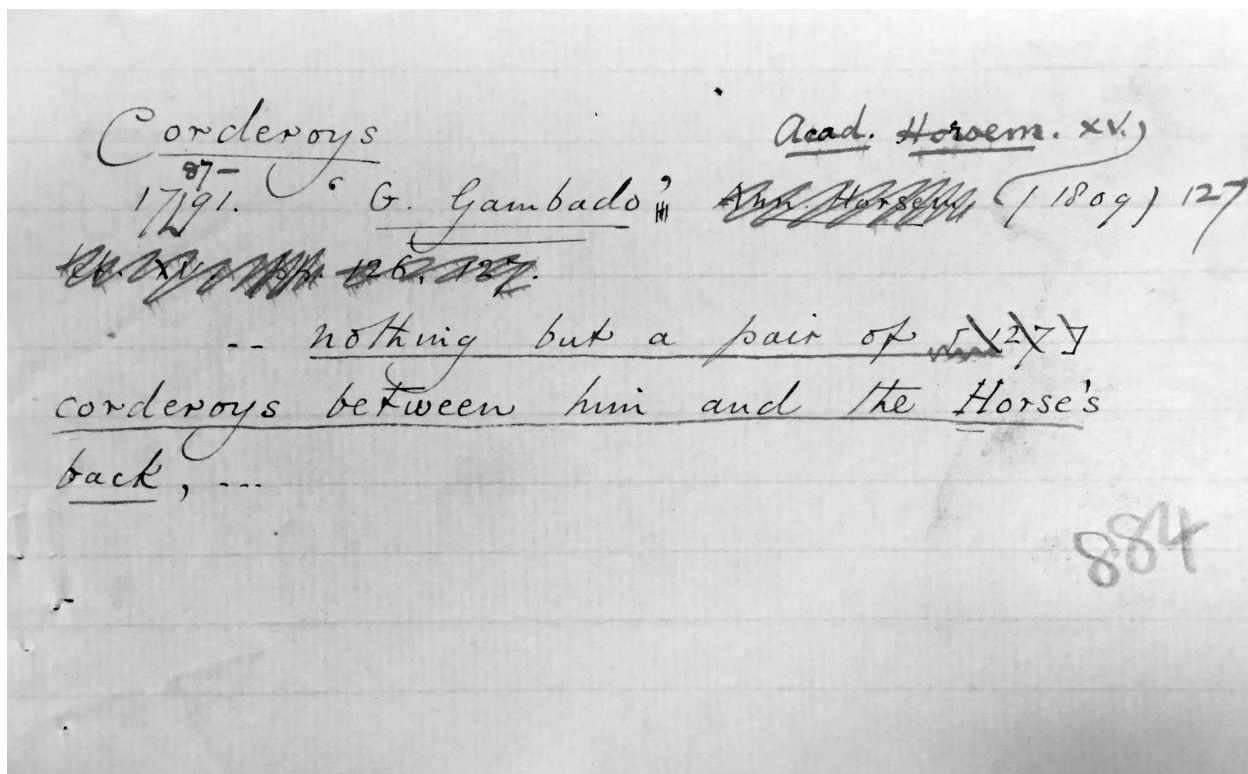 Corderoys Acad. Horsem. xv.
87–
1791. 'G. Gambado' Ann. Horsem. (1809) 127
ch. xv. pp. 126, 127.
-- nothing but a pair of [127]
corderoys between him and the Horse's
back, ---
884